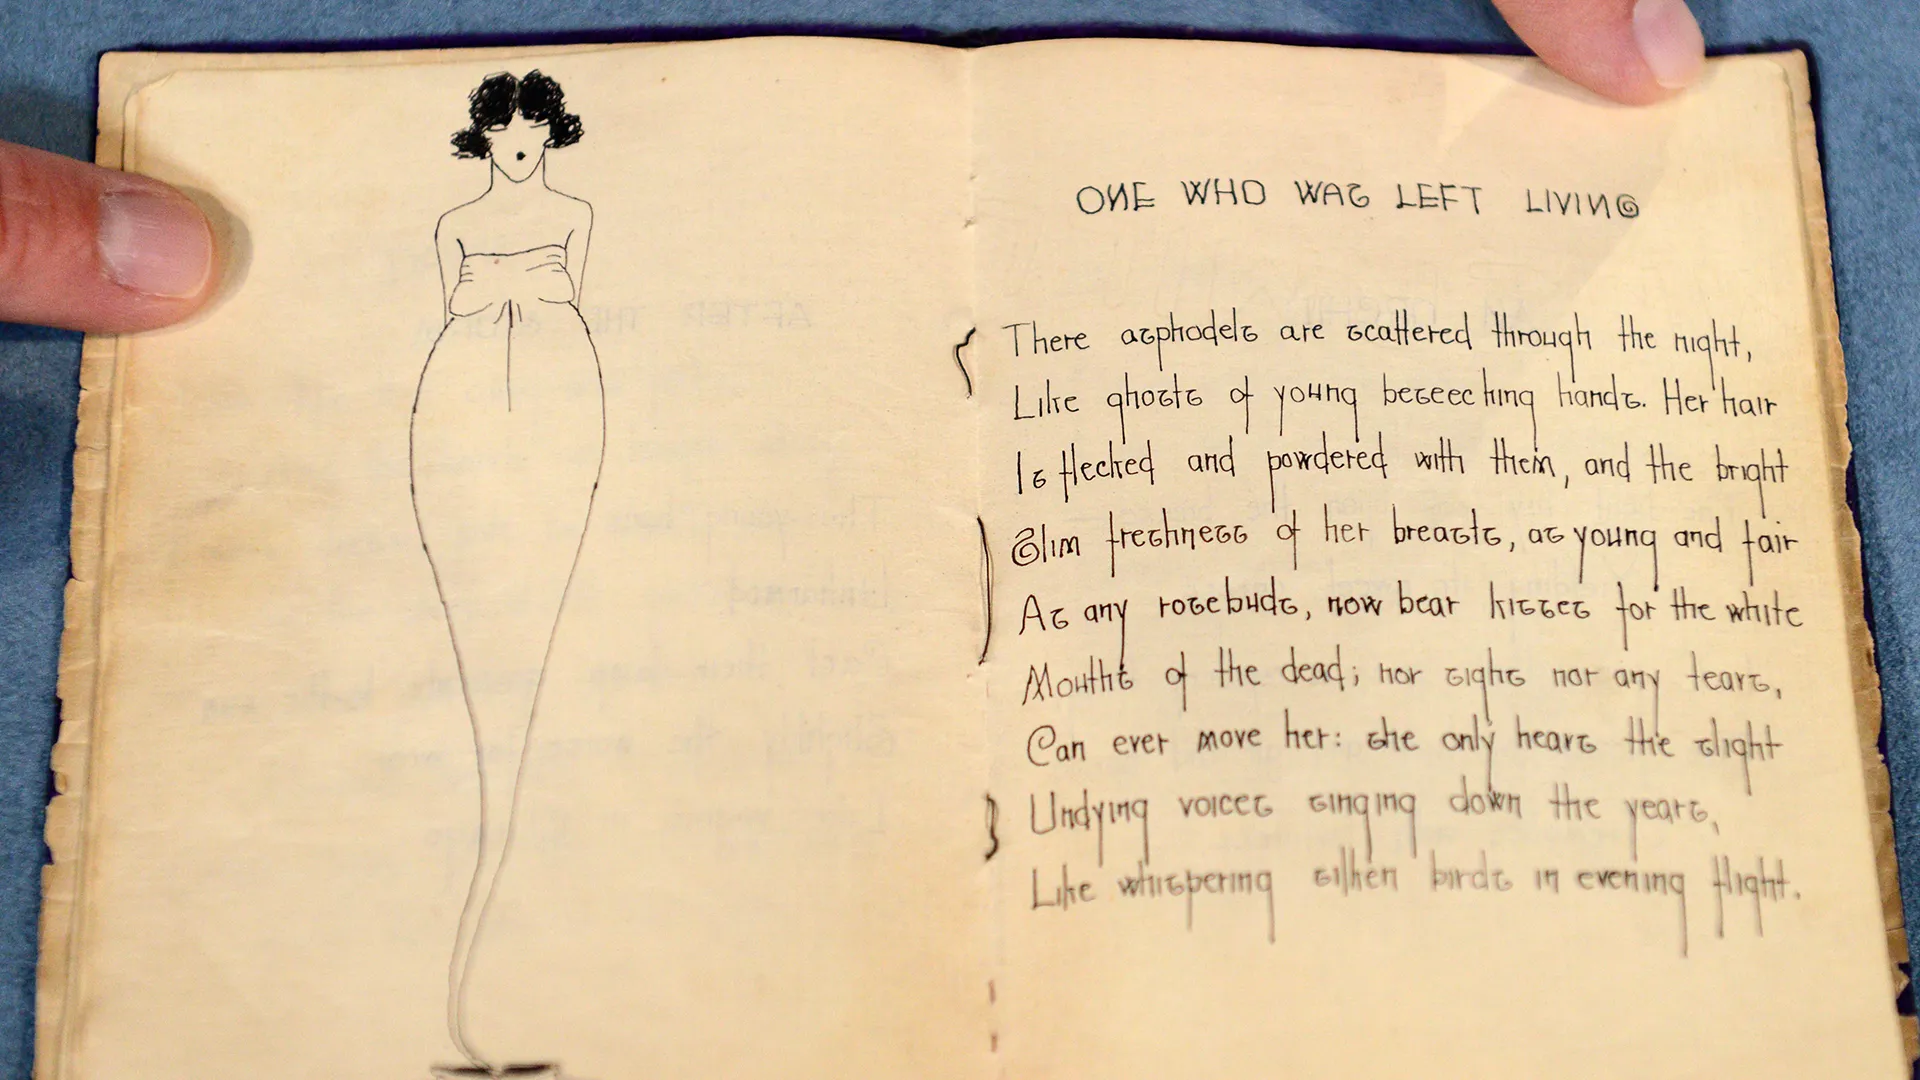 ONE WHO WAS LEFT LIVING
There asphodels are scattered through the night,
Like ghosts of young beseeching hands. Her hair
Is flecked and powdered with them, and the bright
Slim freshness of her breasts, as young and fair
As any rosebuds, now bear kisses for the white
Mouths of the dead; nor sighs nor any tears,
Can ever move her: she only hears the slight
Undying voices singing down the years,
Like whispering silken birds in evening flight.